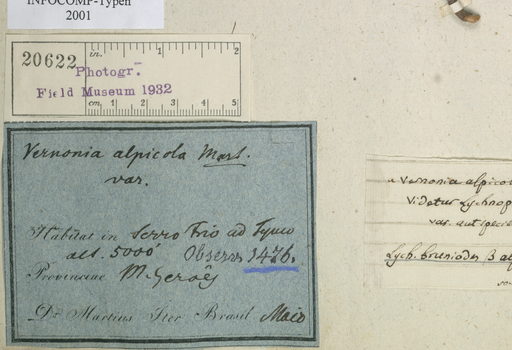 INFOCOMP-Typen
2001
20622
in. 1 2
Photogr.
Field Museum 1932
cm. 1 2 3 4 5
Vernonia alpicola Mart.
var.
Habitat in Serro Frio ad
alt. 5000' Observ. 1426.
Provinciae M. Geraës
Dr. Martius Iter Brasil. Maio
a Vernonia alpico
Videtur Lychnop
var. aut specie
Lych. brunioides β al